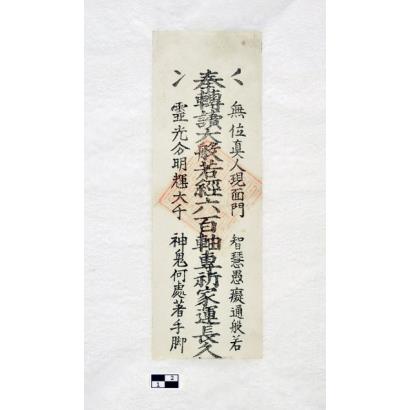 無位真人現面門 智慧愚癡通般若
奉轉讀大般若經六百軸專祈家運長久
靈光分明輝大千 神鬼何處著手脚